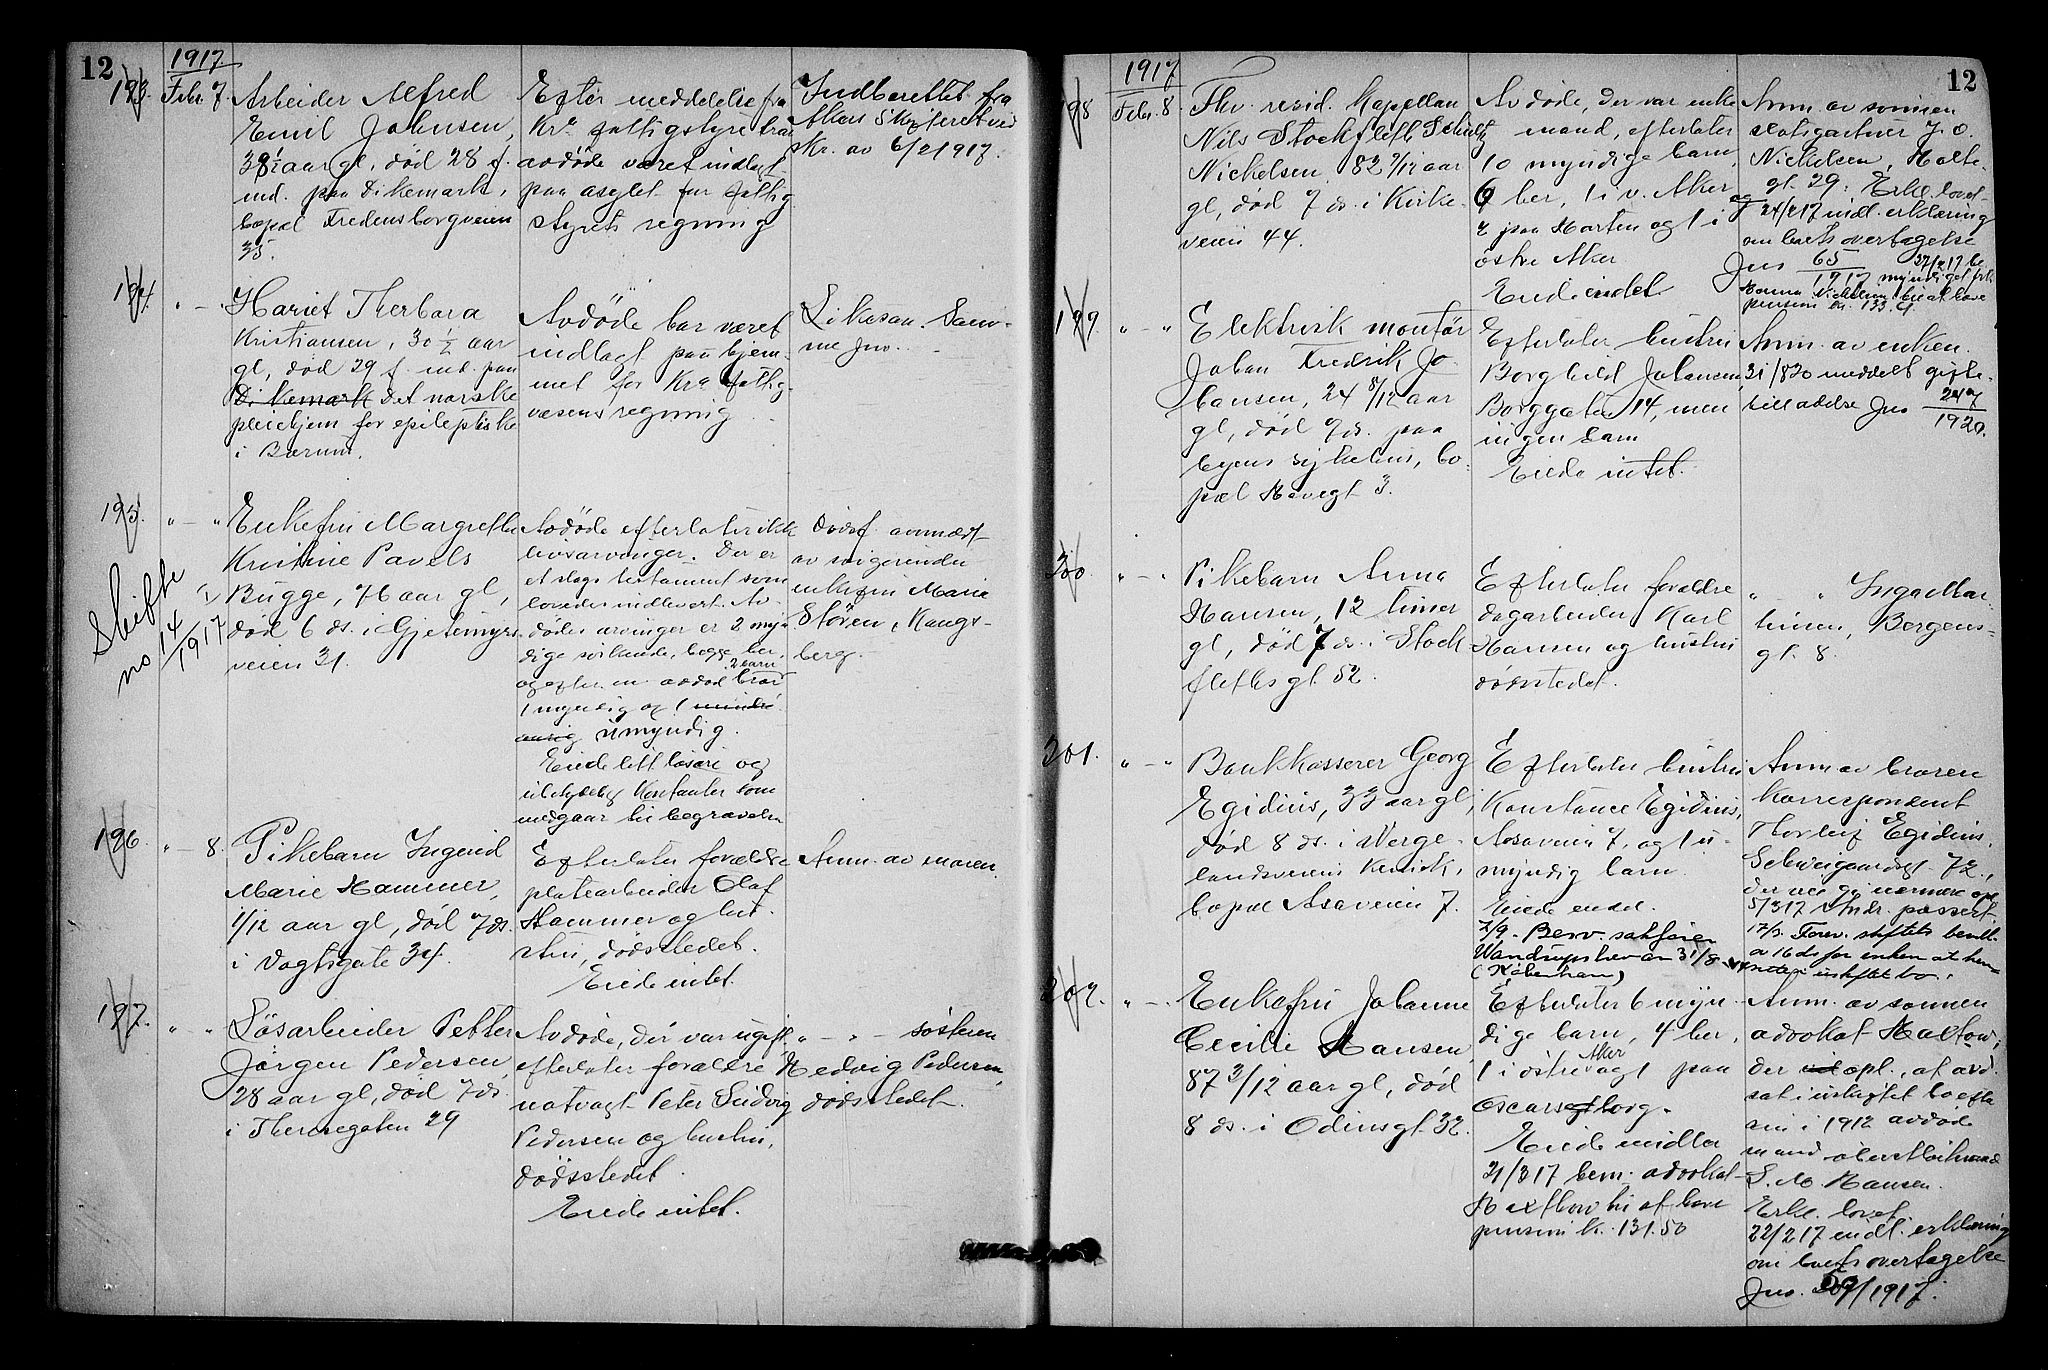 12
1917
193.
Febr. 7.
Arbeider Alfred
Emil Johnsen,
38½ aar gl, død 28 f.
md. paa Dikemark,
bopæl Fredensborgveien
35.
Efter meddelelse fra
Kra fattigstyre har
avdøde været indlagt
paa asylet for fattig
styrets regning
Indberettet fra
Akers skifteret ved
skr. av 6/2 1917.
194.
" - "
Hariet Therbara
Kristiansen, 30½ aar
gl, død 29 f. md. paa
Dikemark Det norske
pleiehjem for epileptiske
i Bærum.
Avdøde har været
indlagt paa hjem-
met for Kra fattig-
væsens regning
Likesaa. Sam-
me Jno.
195.
" - "
Skifte
no 14/1917
Enkefru Margrethe
Kristine Pavels
Bugge, 76 aar gl,
død 6 ds. i Gjetemyrs
veien 31.
Avdøde efterlater ikke
livsarvinger. Der er
et slags testament som
lovedes indlevert. Av-
dødes arvinger er 2 myn
dige søskende, begge her,
og efter en avdød bror 2 barn
1 myndig og 1 mindre
aarig umyndig.
Eiede litt løsøre og
ubetydelig kontanter som
medgaar til begravelse
Dødsf. anmeldt
av svigerinden
enkefru Marie
Støren, Kongs-
berg.
196.
" - 8.
Pikebarn Ingerid
Marie Hammer,
1/12 aar gl, død 7 ds.
i Vogtsgate 34.
Efterlater forældre
platearbeider Olaf
Hammer og hus-
tru, dødsstedet.
Eiede intet.
Anm. av moren.
197.
" "
Løsarbeider Petter
Jørgen Pedersen,
28 aar gl, død 7 ds.
i Theresegaten 29
Avdøde, der var ugift,
efterlater forældre
natvagt Peter Ludvig
Pedersen og hustru,
dødsstedet.
Eiede intet.
" - " - søsteren
Hedvig Pedersen,
dødsstedet.
12
1917
198
Febr. 8.
Fhv. resid. Kapellan
Nils Stockfleth Schultz
Nickelsen, 82 7/12 aar
gl, død 7 ds. i Kirke-
veien 44.
Avdøde, der var enke
mand, efterlater
10 myndige barn,
6 her, 1 i v. Aker
2 paa Horten og 1 i
østre Aker.
Eiede intet.
Anm. av sønnen
slotsgartner J. O.
Nickelsen, Holte-
gt. 29. Erkl. lovet
og 24/2 17 indl. erklæring
om boets overtagelse
Jno 65/1917
27/2 17 be
myndiget frk.
Nickelsen til at hæve
pension kr. 133.
199.
" - "
Elektrisk montør
Johan Fredrik Jo-
hansen, 24 8/12 aar
gl, død 7 ds. paa
byens sykehus, bo-
pæl Havegt 3.
Efterlater hustru
Borghild Johansen,
Borggaten 14, men
ingen barn
Eiede intet.
Anm. av enken.
31/8 20 meddelt gifte-
tilladelse Jno 247/1920.
200.
" - "
Pikebarn Anna
Hansen, 12 timer
gl, død 7 ds. i Stock
fleths gt 52.
Efterlater forældre
dagarbeider Karl
Hansen og hustru
dødsstedet.
" " Inga Mar-
tinsen, Bergens-
gt. 8.
201.
" - "
Bankkasserer Georg
Egidius, 33 aar gl,
død 8 ds. i Verge-
landsveiens klinik,
bopæl Asaveien 7.
Efterlater hustru
Konstance Egidius,
Aasaveien 7, og 1 u-
myndig barn.
Eiede endel.
7/9. Bev. sakfører
(København)
Anm av broren
Korrespondent
Thorleif Egidius,
Schweigaardsgt. 72,
der vil gi nærmere opl.
5/3 17
202.
" - "
Enkefru Johanne
Cecilie Hansen,
87 3/12 aar gl, død
8 ds. i Odinsgt. 32.
Efterlater 6 myn-
dige barn, 4 her,
1 i østre Aker og 1 paa
Oscarsborg.
Eiede midler
21/3 17 bem. advokat
til at hæve
pension kr. 131.50
Anm. av sønnen
advokat
der opl., at avd.
sat i uskiftet bo efter
sin i 1912 avdøde
mand oberstløitnand
L. M. Hansen.
Erkl. lovet.
22/2 17 indl. erklæring
om boets overtagelse
Jno. 59/1917.